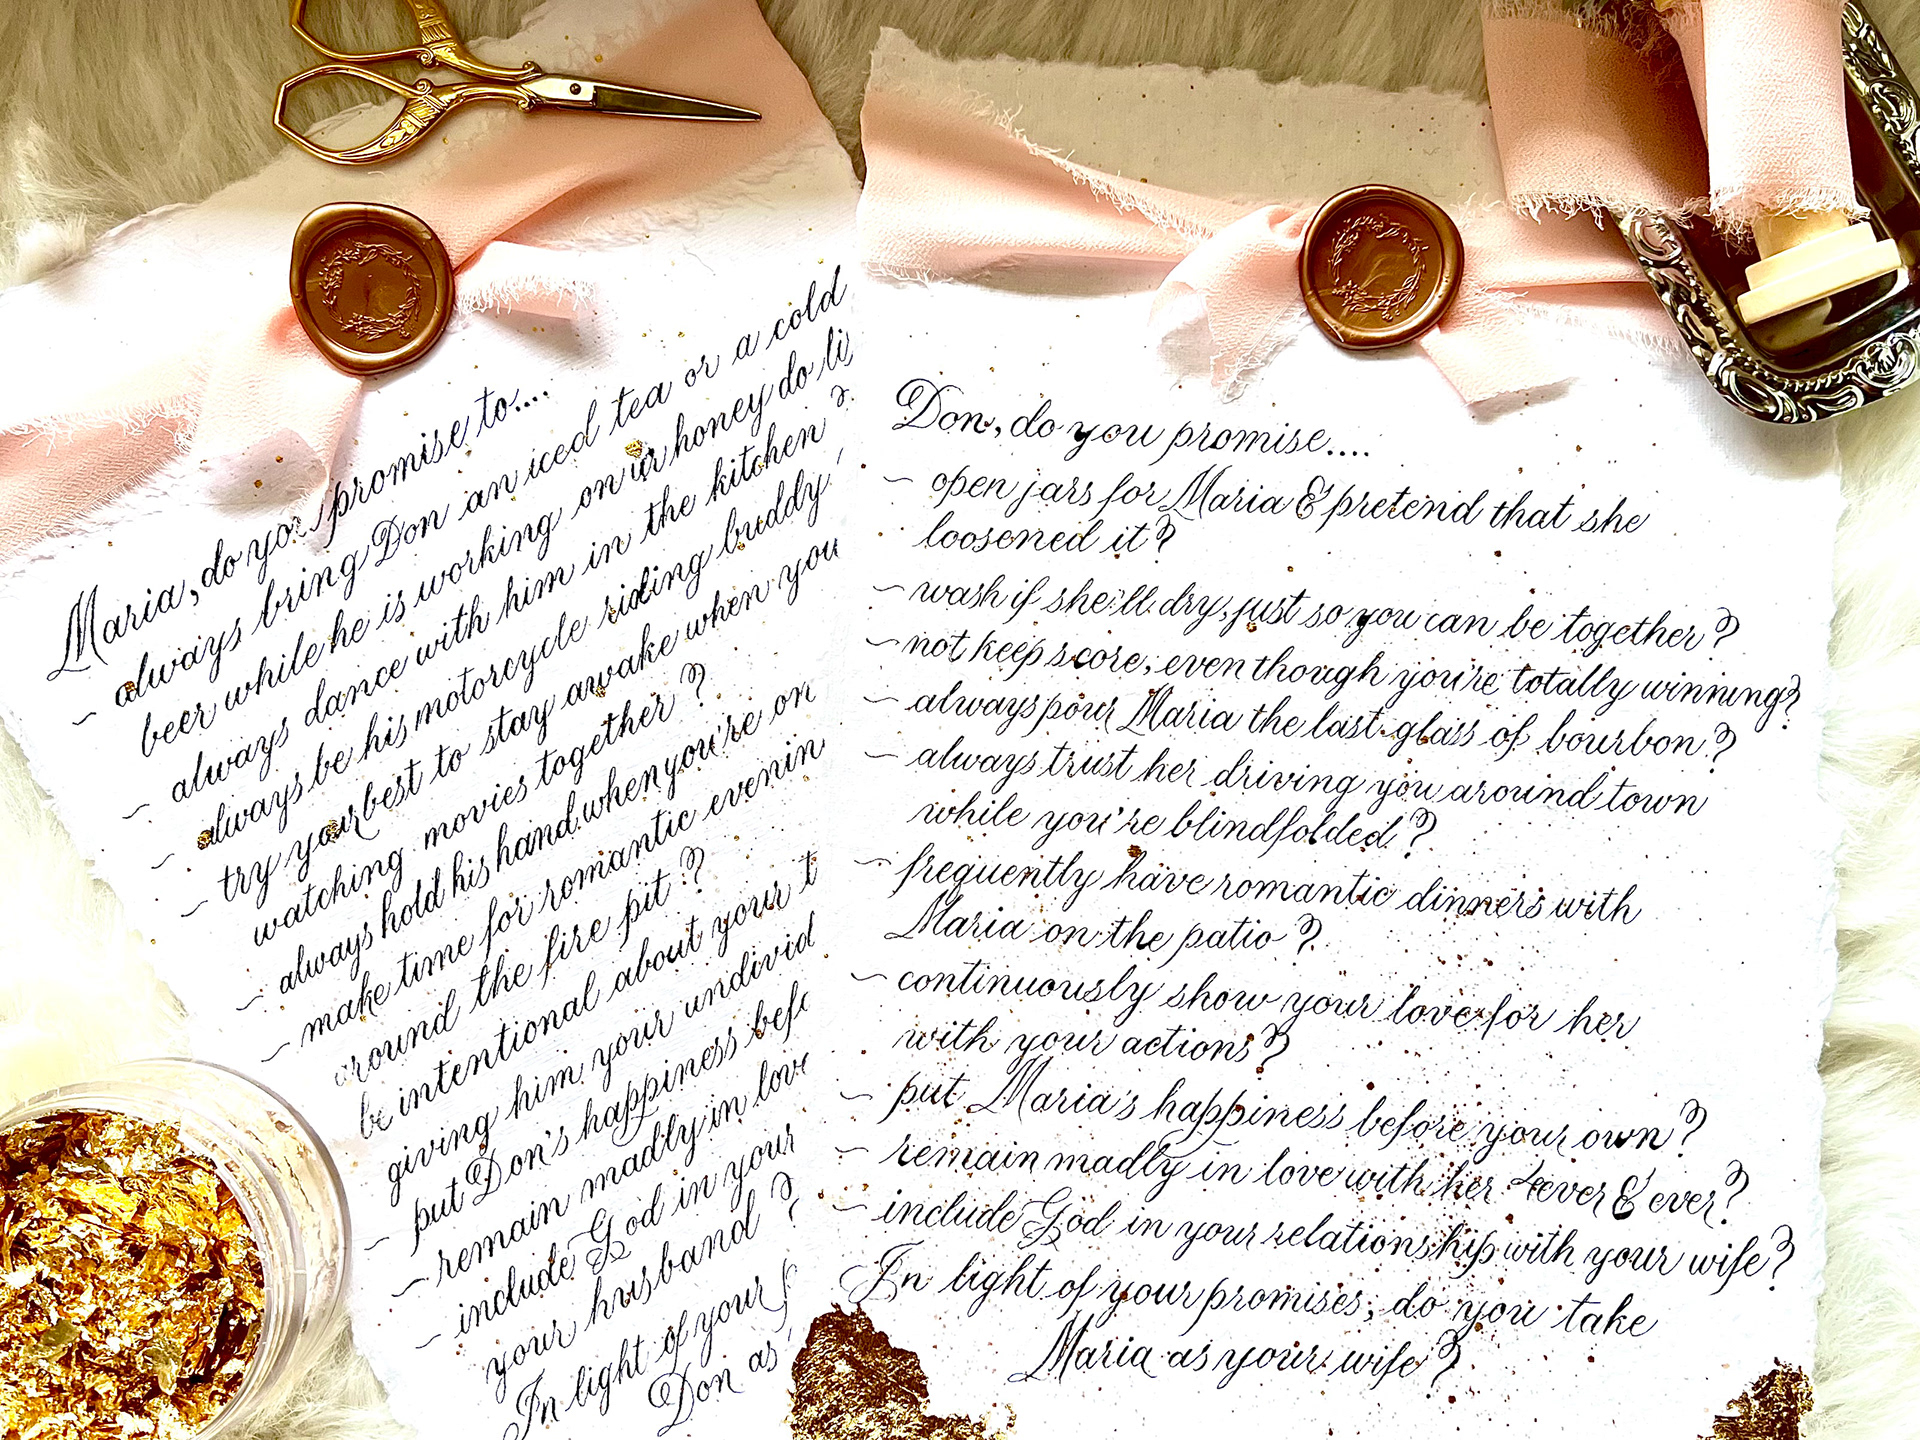 Maria, do you promise to....
~ always bring Don an iced tea or a cold
beer while he is working on ur honey do
~ always dance with him in the kitchen ?
~ always be his motorcycle riding buddy
~ try your best to stay awake when you
watching movies together ?
~ always hold his hand when you're on
~ make time for romantic
around the fire pit ?
be intentional about your
giving him your
~ put Don's happiness
~ remain madly in
~ include God in your
your husband ?
In light of your
Don as
Don, do you promise....
~ open jars for Maria & pretend that she
loosened it ?
~ wash if she'll dry, just so you can be together ?
~ not keep score, even though you're totally winning?
~ always pour Maria the last glass of bourbon ?
~ always trust her driving you around town
while you're blindfolded ?
~ frequently have romantic dinners with
Maria on the patio ?
~ continuously show your love for her
with your actions ?
~ put Maria's happiness before your own ?
~ remain madly in love with her 4ever & ever ?
~ include God in your relationship with your wife ?
In light of your promises, do you take
Maria as your wife ?